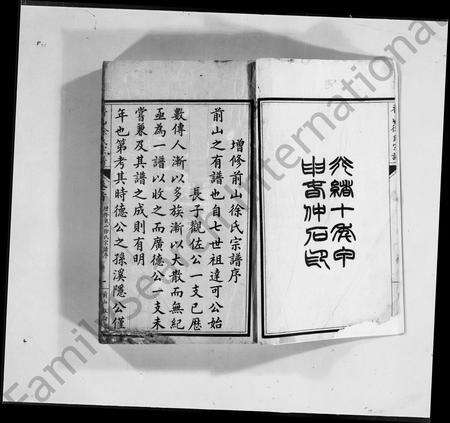 光緒十年甲
申春仲石印
增修前山徐氏宗譜序
前山之有譜也自七世祖達可公始
長子觀佐公一支已歷
數傳人漸以多族漸以大散而無紀
亟為一譜以收之而廣德公一支未
嘗兼及其譜之成則有明
年也第考其時德公之孫溪隱公僅
FamilySearch International